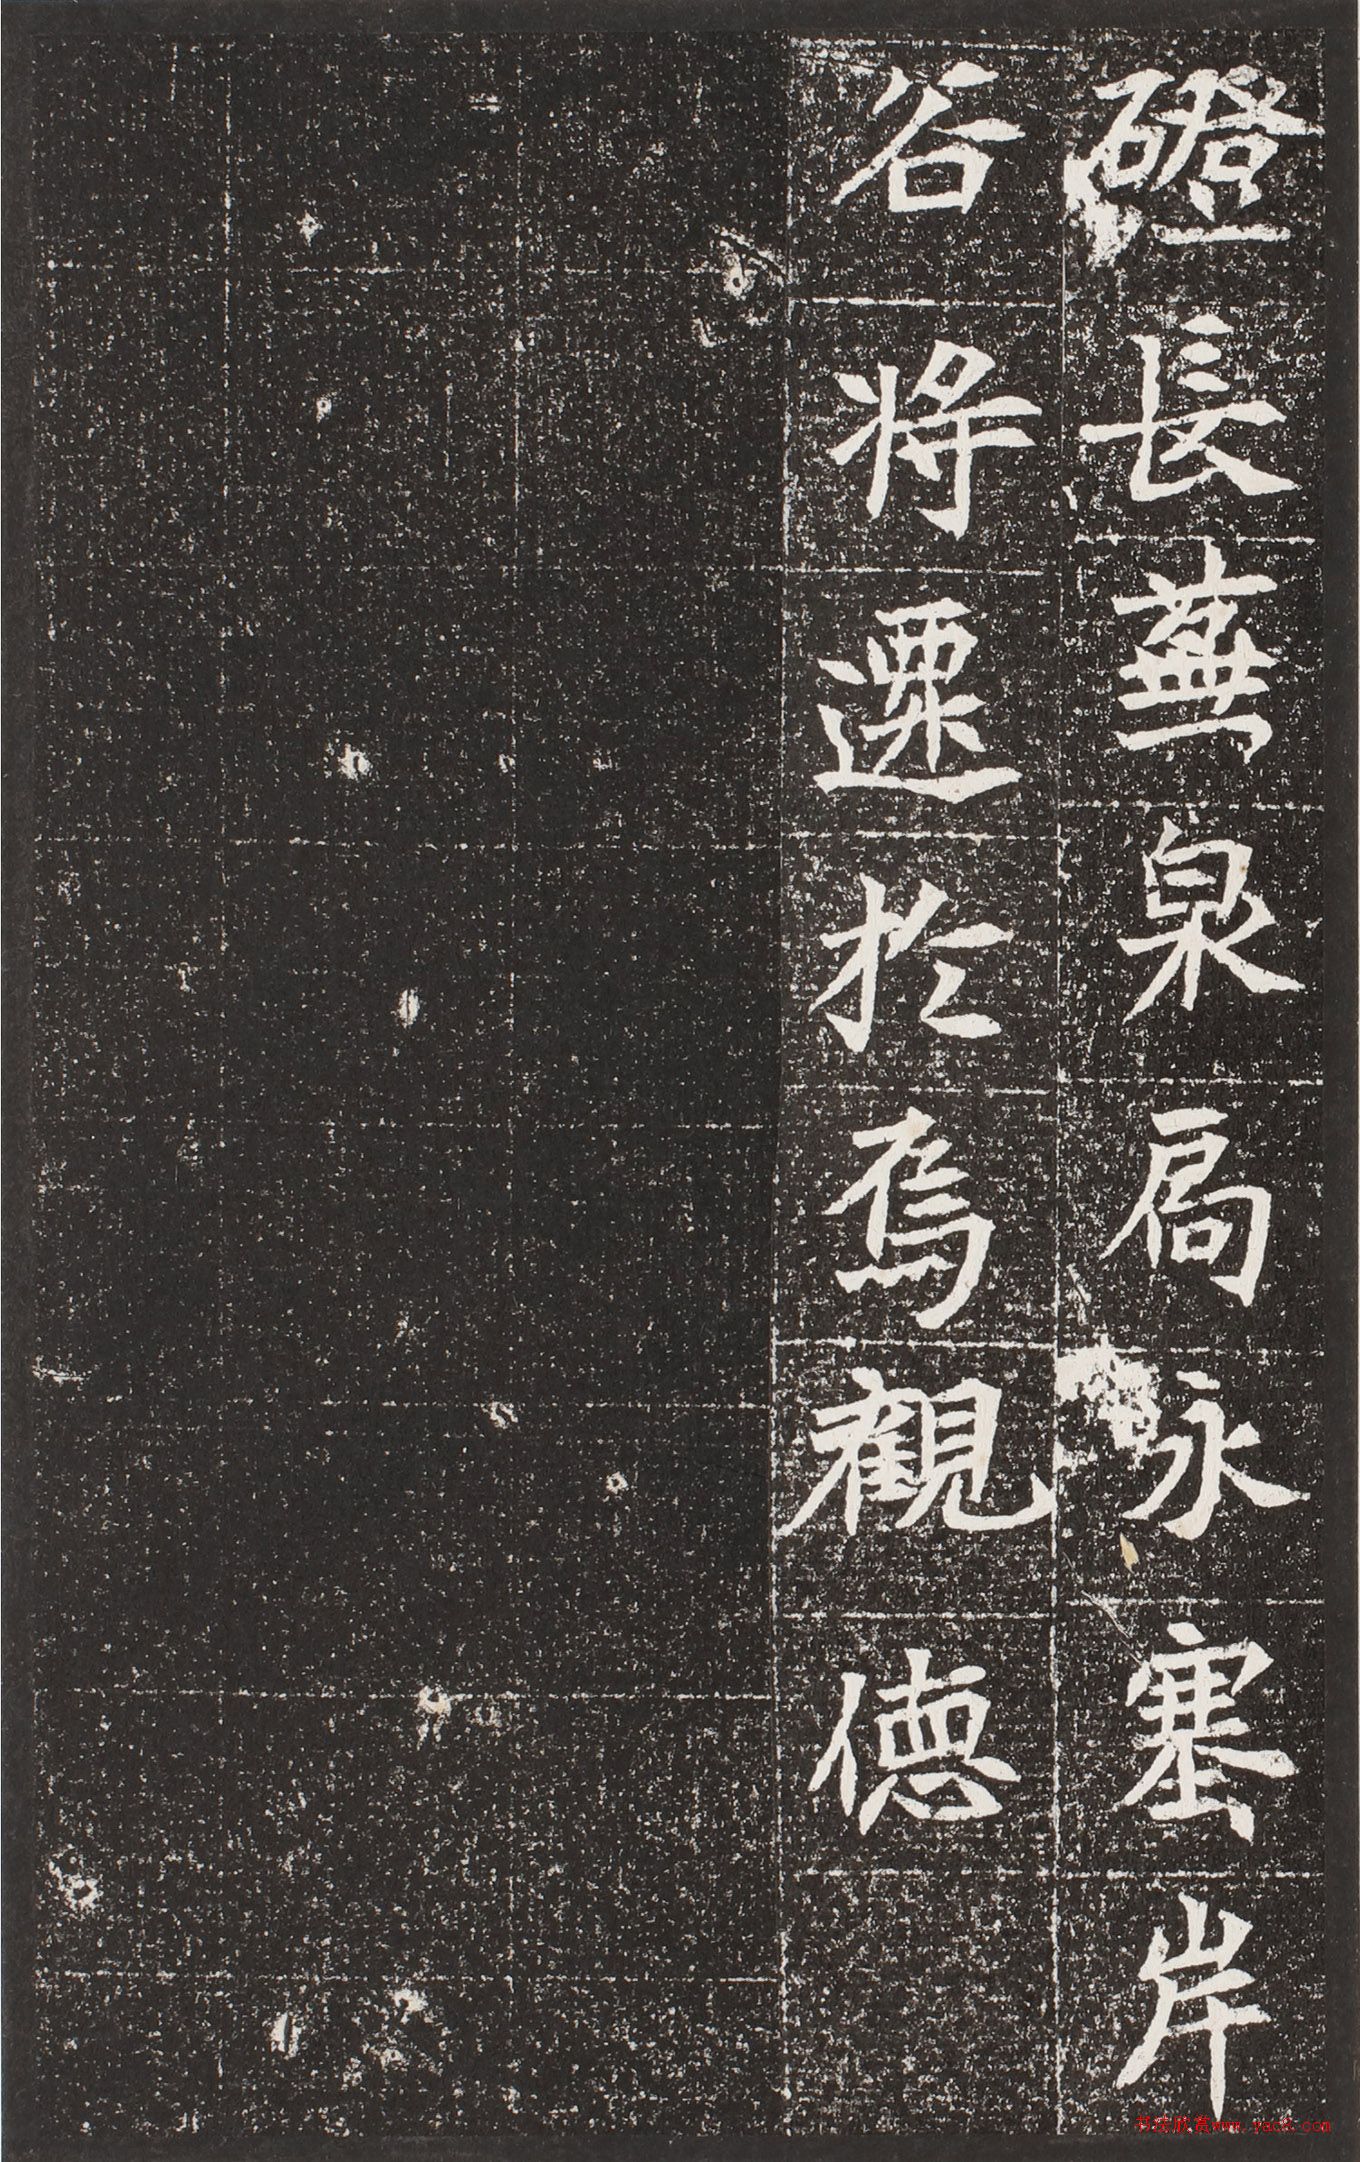 磴長蕪泉扃永塞岸
谷將遷於焉觀德
书法欣赏www.yac8.com